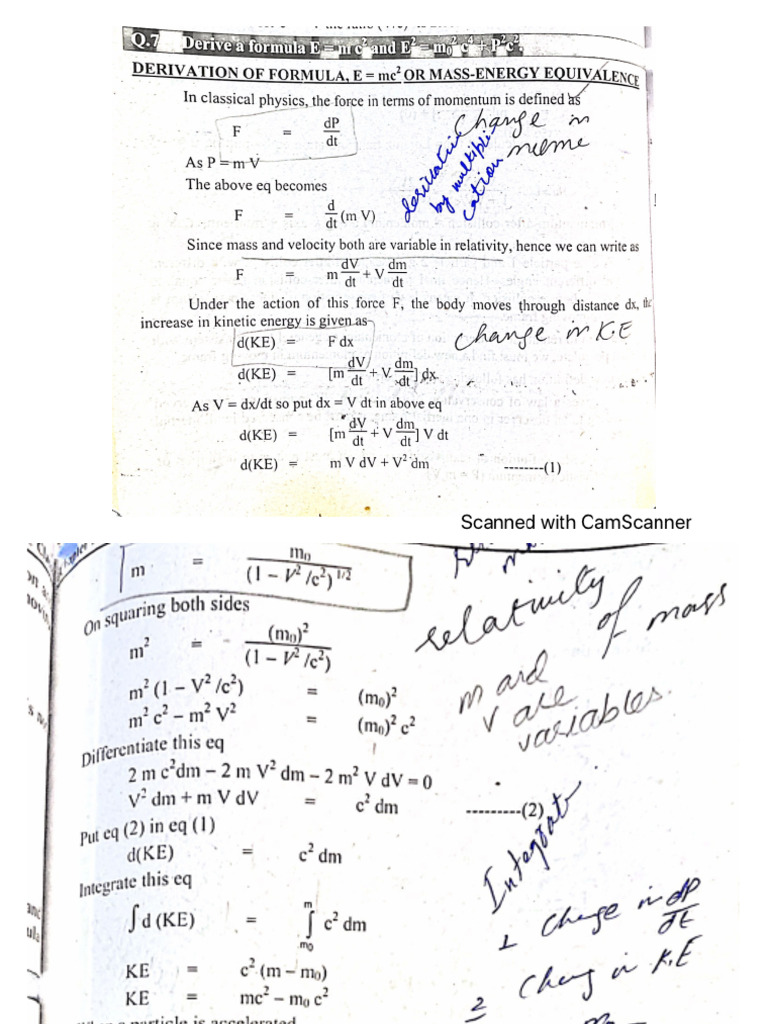 Q.7 Derive a formula E = m c² and E² = m₀² c⁴ + P²c².
DERIVATION OF FORMULA, E = mc² OR MASS-ENERGY EQUIVALENCE
In classical physics, the force in terms of momentum is defined as
F = dP/dt
Change in
As P = m V
The above eq becomes
by multipli
cation
F = d/dt (m V)
Since mass and velocity both are variable in relativity, hence we can write as
F = m dV/dt + V dm/dt
Under the action of this force F, the body moves through distance dx, the
increase in kinetic energy is given as
d(KE) = F dx
Change in K.E
d(KE) = [m dV/dt + V dm/dt] dx
As V = dx/dt so put dx = V dt in above eq
d(KE) = [m dV/dt + V dm/dt] V dt
d(KE) = m V dV + V² dm --------(1)
Scanned with CamScanner
m = m₀/(1 – V²/c²)^1/2
On squaring both sides
relativity of mass
m² = (m₀)²/(1 – V²/c²)
m² (1 – V²/c²) = (m₀)²
m and
V are
variables.
m² c² – m² V² = (m₀)² c²
Differentiate this eq
2 m c²dm – 2 m V² dm – 2 m² V dV = 0
V² dm + m V dV = c² dm ---------(2)
Put eq (2) in eq (1)
d(KE) = c² dm
Integrate
Integrate this eq
∫ d (KE) = ∫ m₀ m c² dm
1 Change in dP/dt
KE = c² (m – m₀)
KE = mc² – m₀ c²
2 Chang in K.E
a particle is accelerated